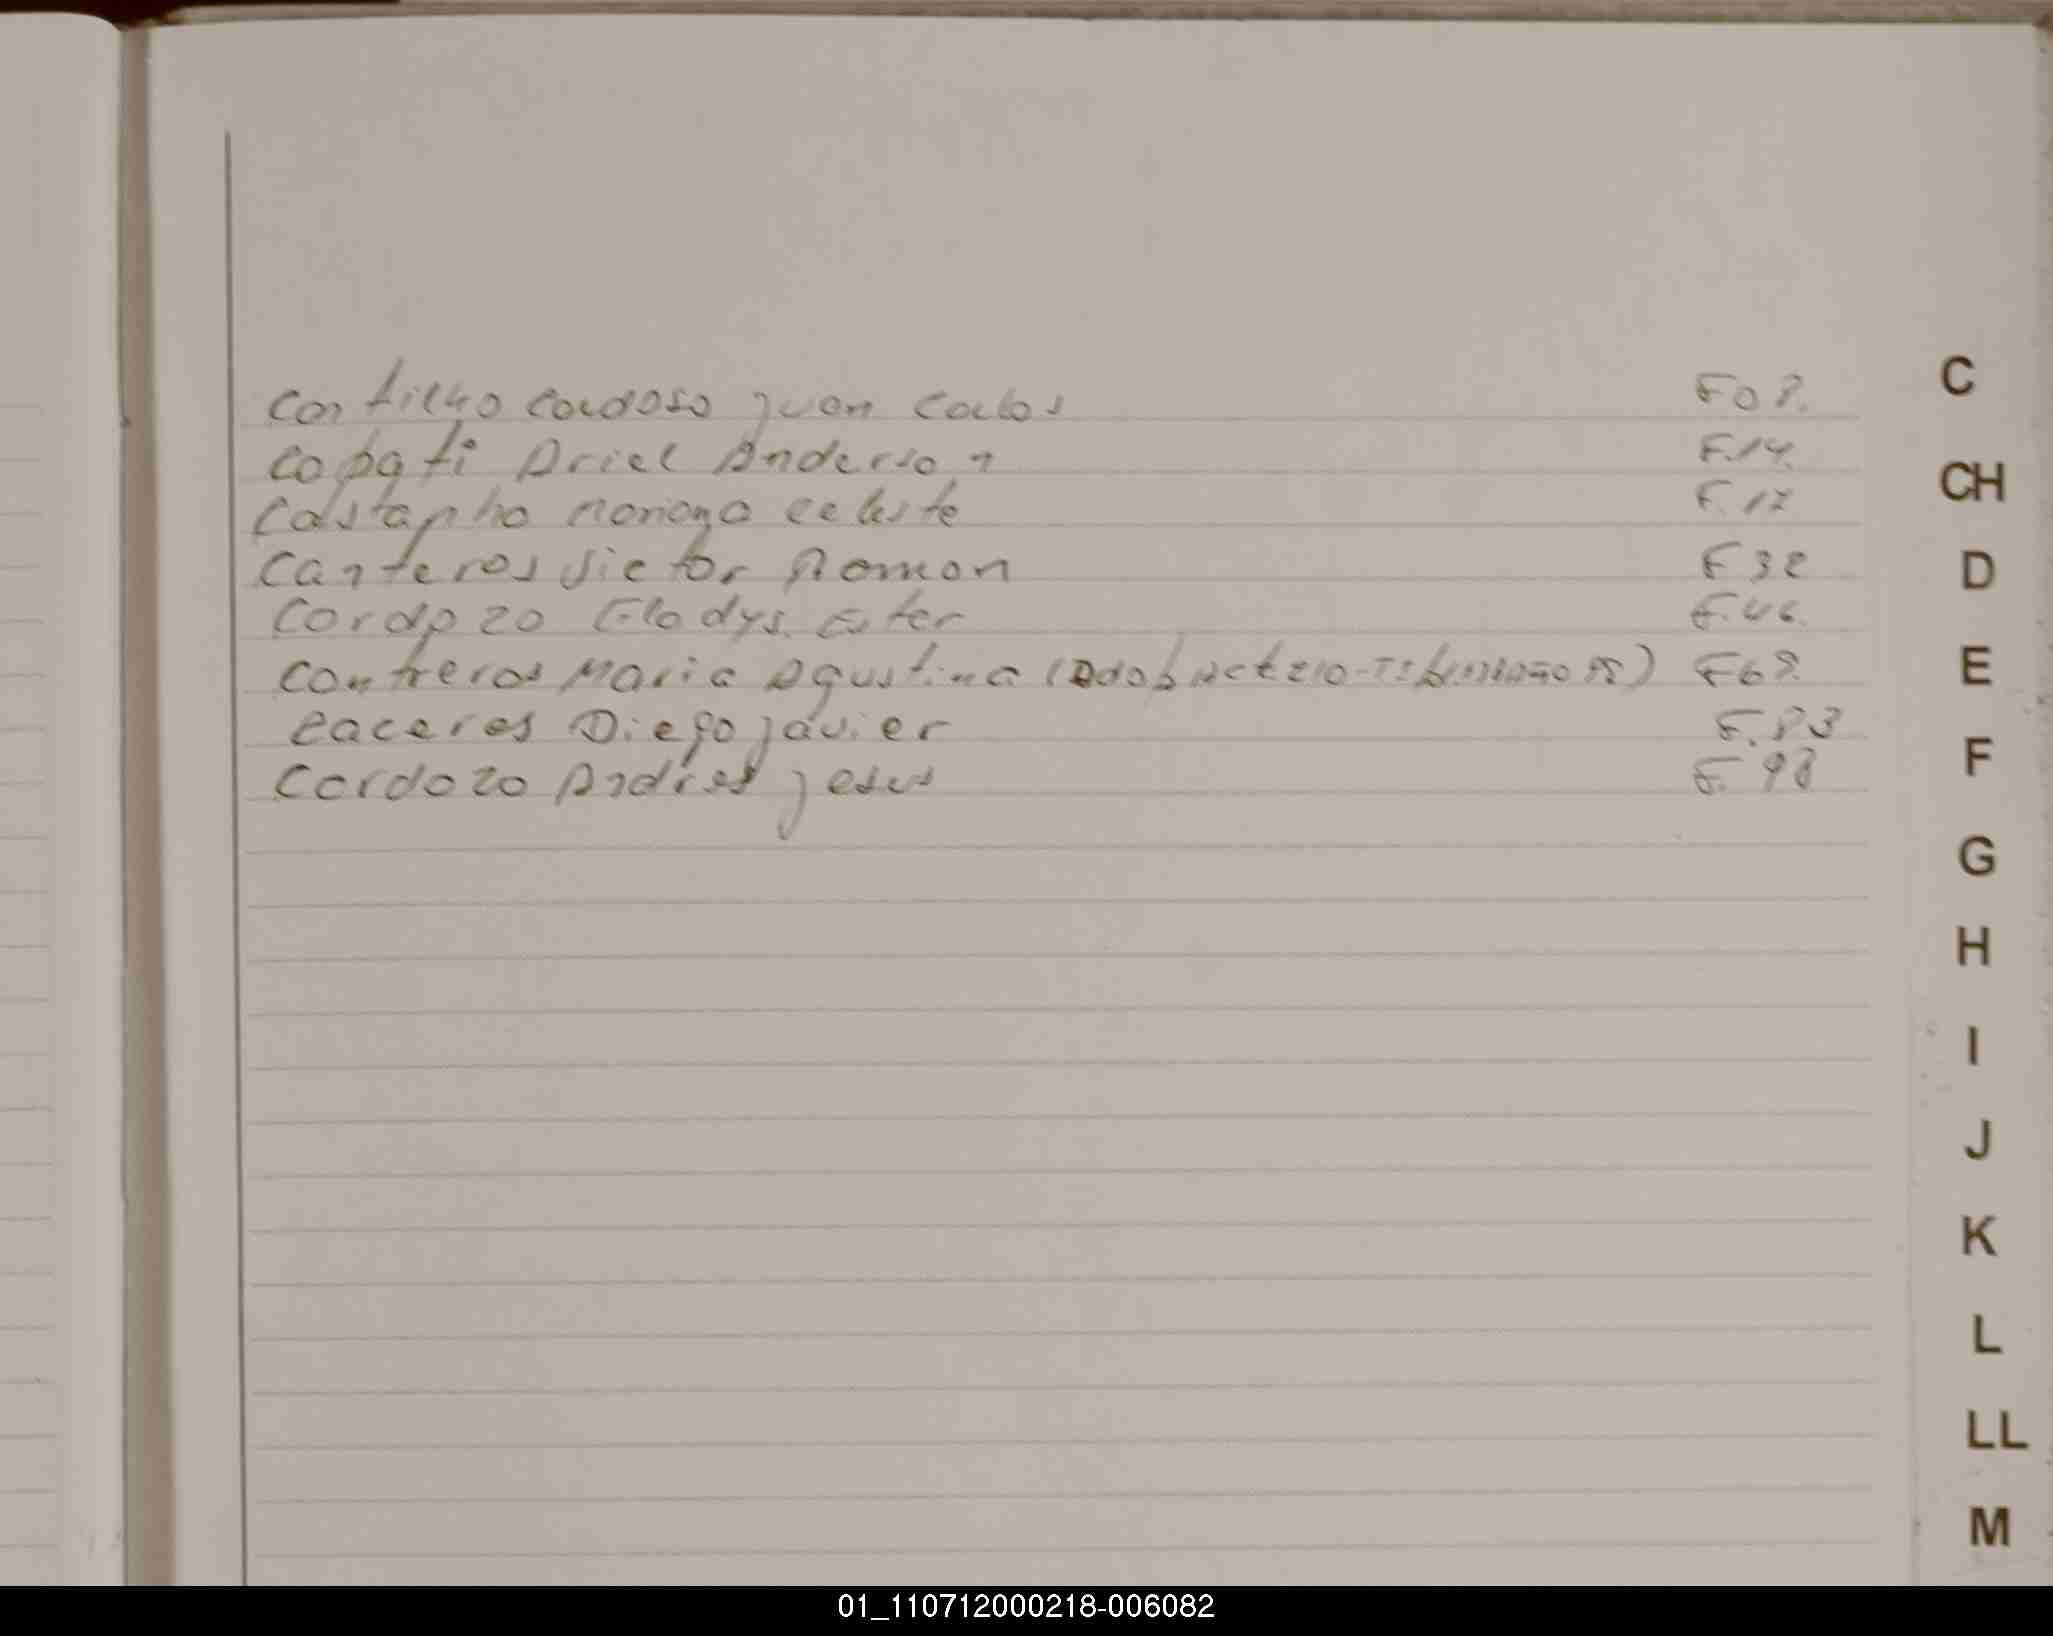 Cardoso Juan Carlos F08.
Ariel Anderson F.14.
celeste F.17
Canteros Victor Ramon F32
Cardozo Gladys. Ester F.46.
Contreras Maria Agustina F68.
Caceres Diego Javier F.83
Cardozo Andres Jesus F.98
C
CH
D
E
F
G
H
I
J
K
L
LL
M
01_110712000218-006082